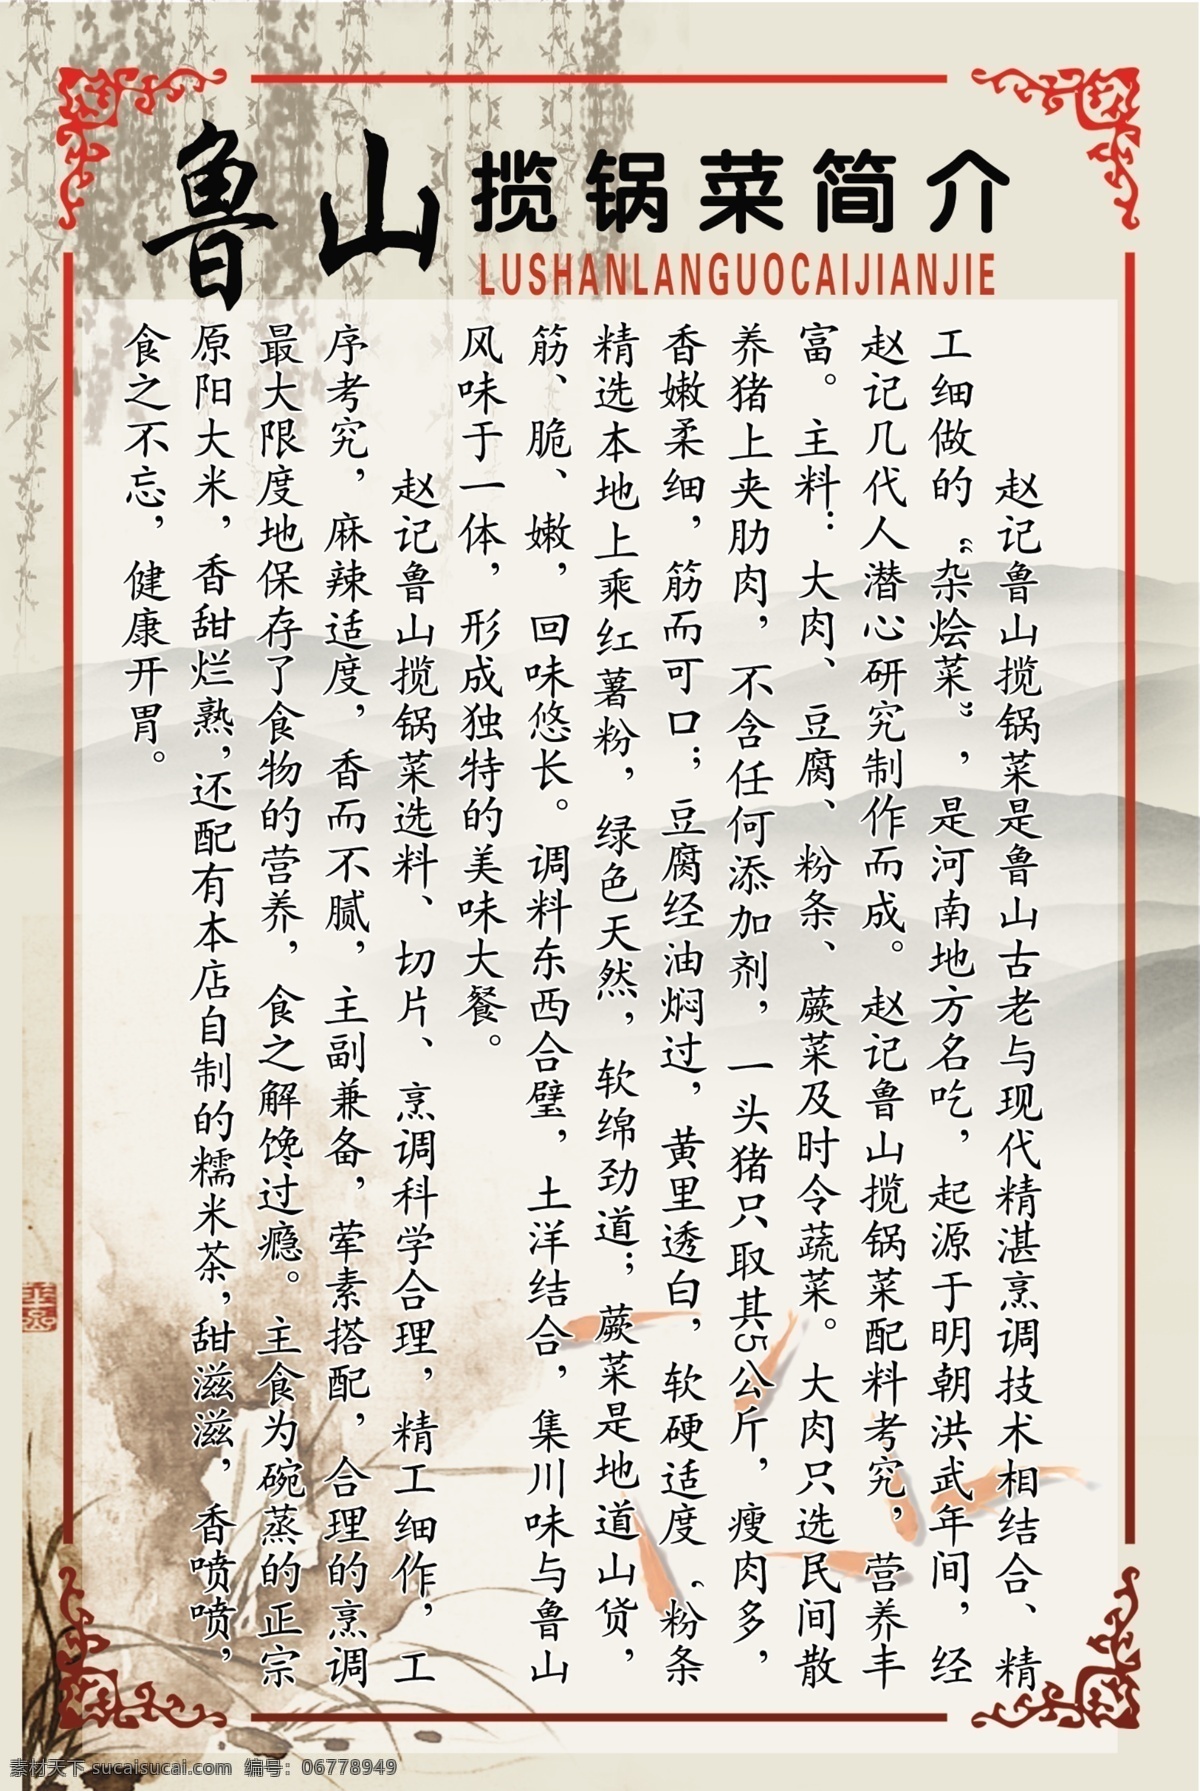 鲁山揽锅菜简介
LUSHANLANGUOCAIJIANJIE
赵记鲁山揽锅菜是鲁山古老与现代精湛烹调技术相结合、精
工细做的“杂烩菜”，是河南地方名吃，起源于明朝洪武年间，经
赵记几代人潜心研究制作而成。赵记鲁山揽锅菜配料考究，营养丰
富。主料：大肉、豆腐、粉条、蕨菜及时令蔬菜。大肉只选民间散
养猪上夹肋肉，不含任何添加剂，一头猪只取其5公斤，瘦肉多，
香嫩柔细，筋而可口；豆腐经油焖过，黄里透白，软硬适度“粉条
精选本地上乘红薯粉，绿色天然，软绵劲道；蕨菜是地道山货，
筋、脆、嫩，回味悠长。调料东西合璧，土洋结合，集川味与鲁山
风味于一体，形成独特的美味大餐。
赵记鲁山揽锅菜选料、切片、烹调科学合理，精工细作，工
序考究，麻辣适度，香而不腻，主副兼备，荤素搭配，合理的烹调
最大限度地保存了食物的营养，食之解馋过瘾。主食为碗蒸的正宗
原阳大米，香甜烂熟，还配有本店自制的糯米茶，甜滋滋，香喷喷，
食之不忘，健康开胃。
素材天下 sucaisucai.com 编号：06778949